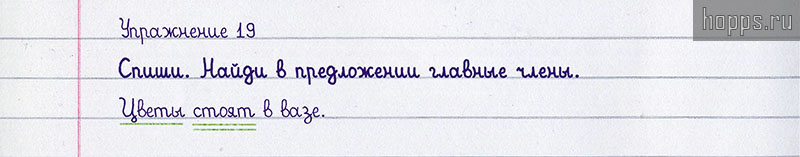 hopps.ru
Упражнение 19
Спиши. Найди в предложении главные члены.
Цветы стоят в вазе.